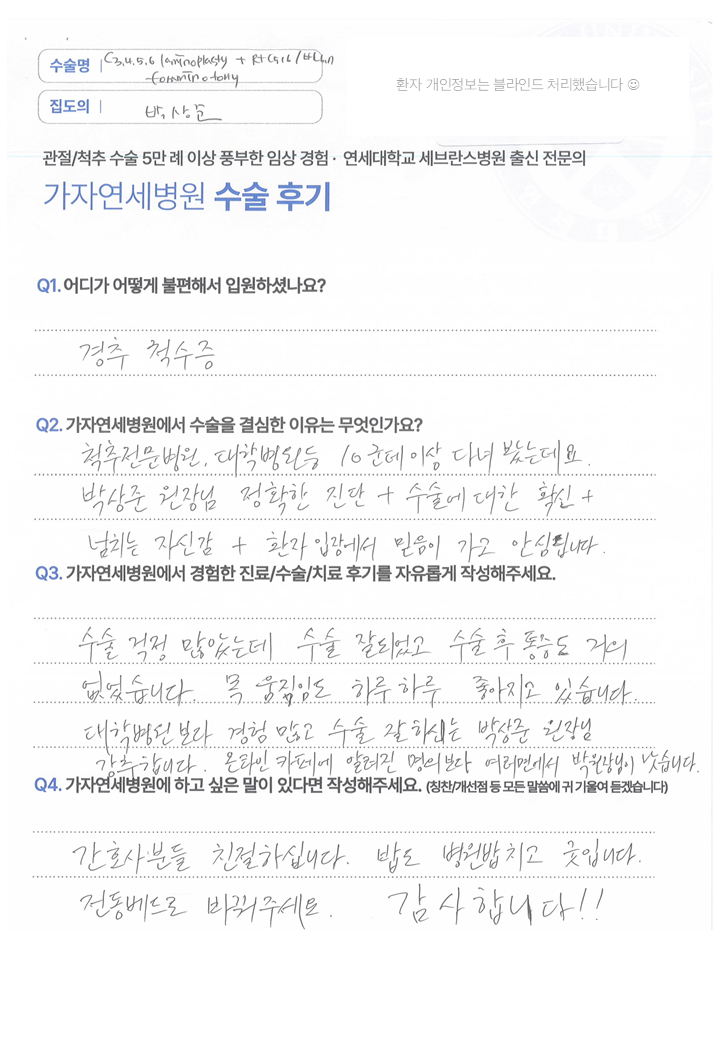 수술명 | C3.4.5.6 laminoplasty + Rt C5/6 /
foraminotomy
환자 개인정보는 블라인드 처리했습니다 ☺
집도의 | 박상준
관절/척추 수술 5만 례 이상 풍부한 임상 경험 · 연세대학교 세브란스병원 출신 전문의
가자연세병원 수술 후기
Q1. 어디가 어떻게 불편해서 입원하셨나요?
경추 척수증
Q2. 가자연세병원에서 수술을 결심한 이유는 무엇인가요?
척추전문병원, 대학병원등 10군데이상 다녀 봤는데요.
박상준 원장님 정확한 진단 + 수술에 대한 확신 +
넘치는 자신감 + 환자 입장에서 믿음이 가고 안심됩니다.
Q3. 가자연세병원에서 경험한 진료/수술/치료 후기를 자유롭게 작성해주세요.
수술 걱정 많았는데 수술 잘되었고 수술 후 통증도 거의
없었습니다. 목 움직임도 하루하루 좋아지고 있습니다.
대학병원보다 경험 많고 수술 잘하시는 박상준 원장님
강추합니다. 온라인 카페에 알려진 명의보다 여러면에서 박원장님이 낫습니다.
Q4. 가자연세병원에 하고 싶은 말이 있다면 작성해주세요. (칭찬/개선점 등 모든 말씀에 귀 기울여 듣겠습니다)
간호사분들 친절하십니다. 밥도 병원밥치고 굿입니다.
전동베드로 바꿔주세요. 감사합니다!!